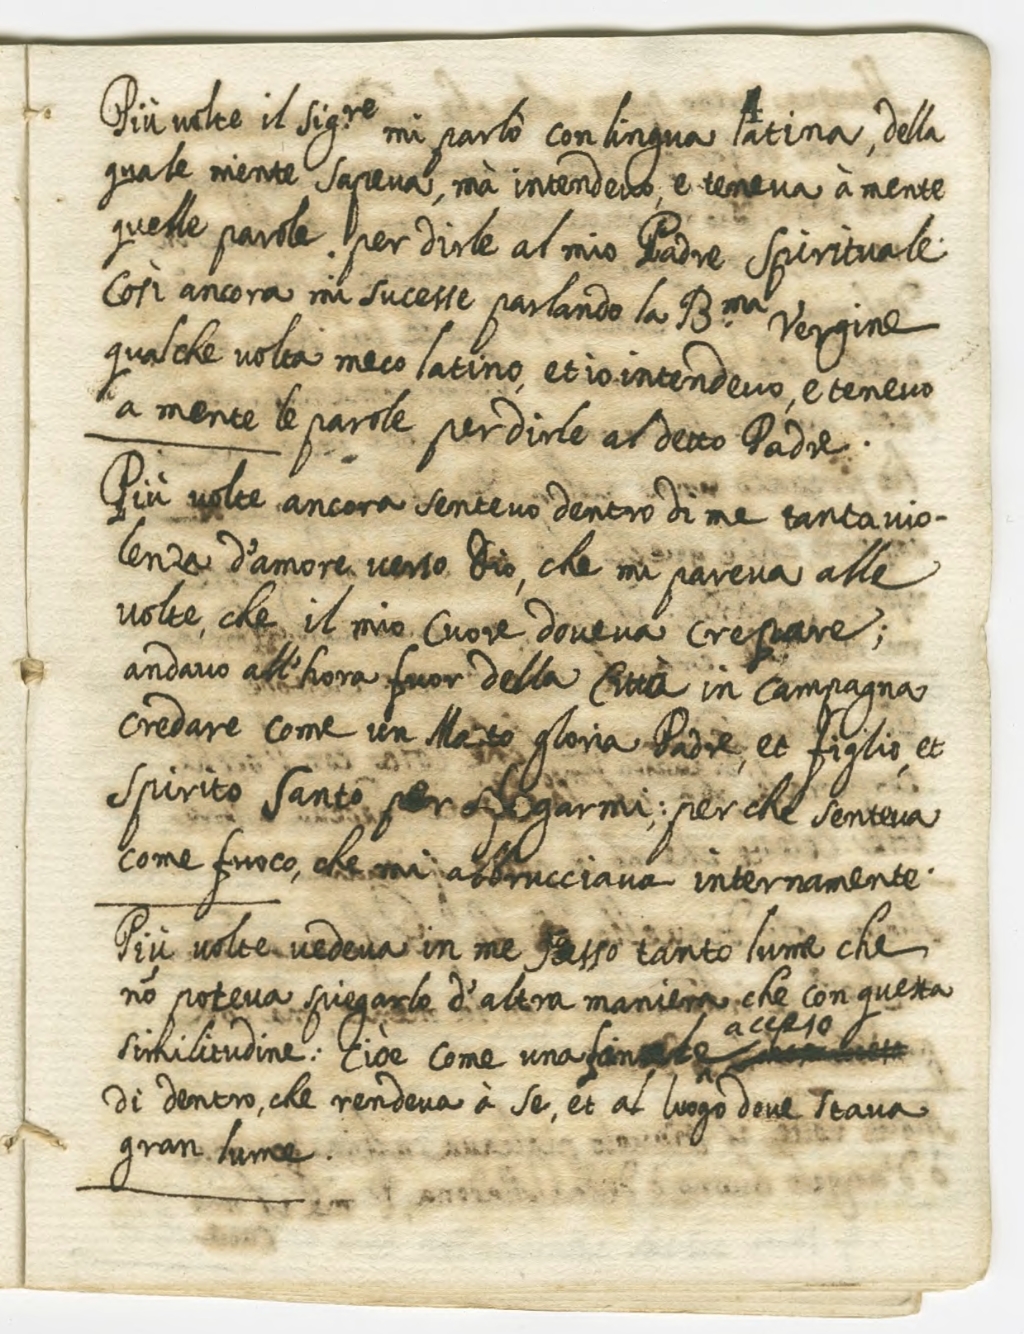 Più volte il Sig.re mi parlò con lingua latina, della
quale niente sapeva, mà intendevo, e teneva à mente
quelle parole per dirle al mio Padre Spirituale.
Così ancora mi sucesse parlando la B.ma Vergine
qualche volta meco latino, et io intendevo, e tenevo
a mente le parole per dirle al detto Padre.
Più volte ancora sentevo dentro di me tanta vio-
lenza d'amore verso Dio, che mi pareva alle
volte, che il mio Cuore doveva crepare;
andavo all'hora fuor della Città in campagna
credare come un Mato gloria Padre, et figlio, et
Spirito Santo per sfogarmi; per che senteva
come fuoco, che mi abbrucciava internamente.
Più volte vedeva in me stesso tanto lume che
nõ poteva spiegarlo d'altra maniera che con questa
similitudine: Cióe come una fanale acceso
di dentro, che rendeva à se, et al luogo dove stava
gran lume.